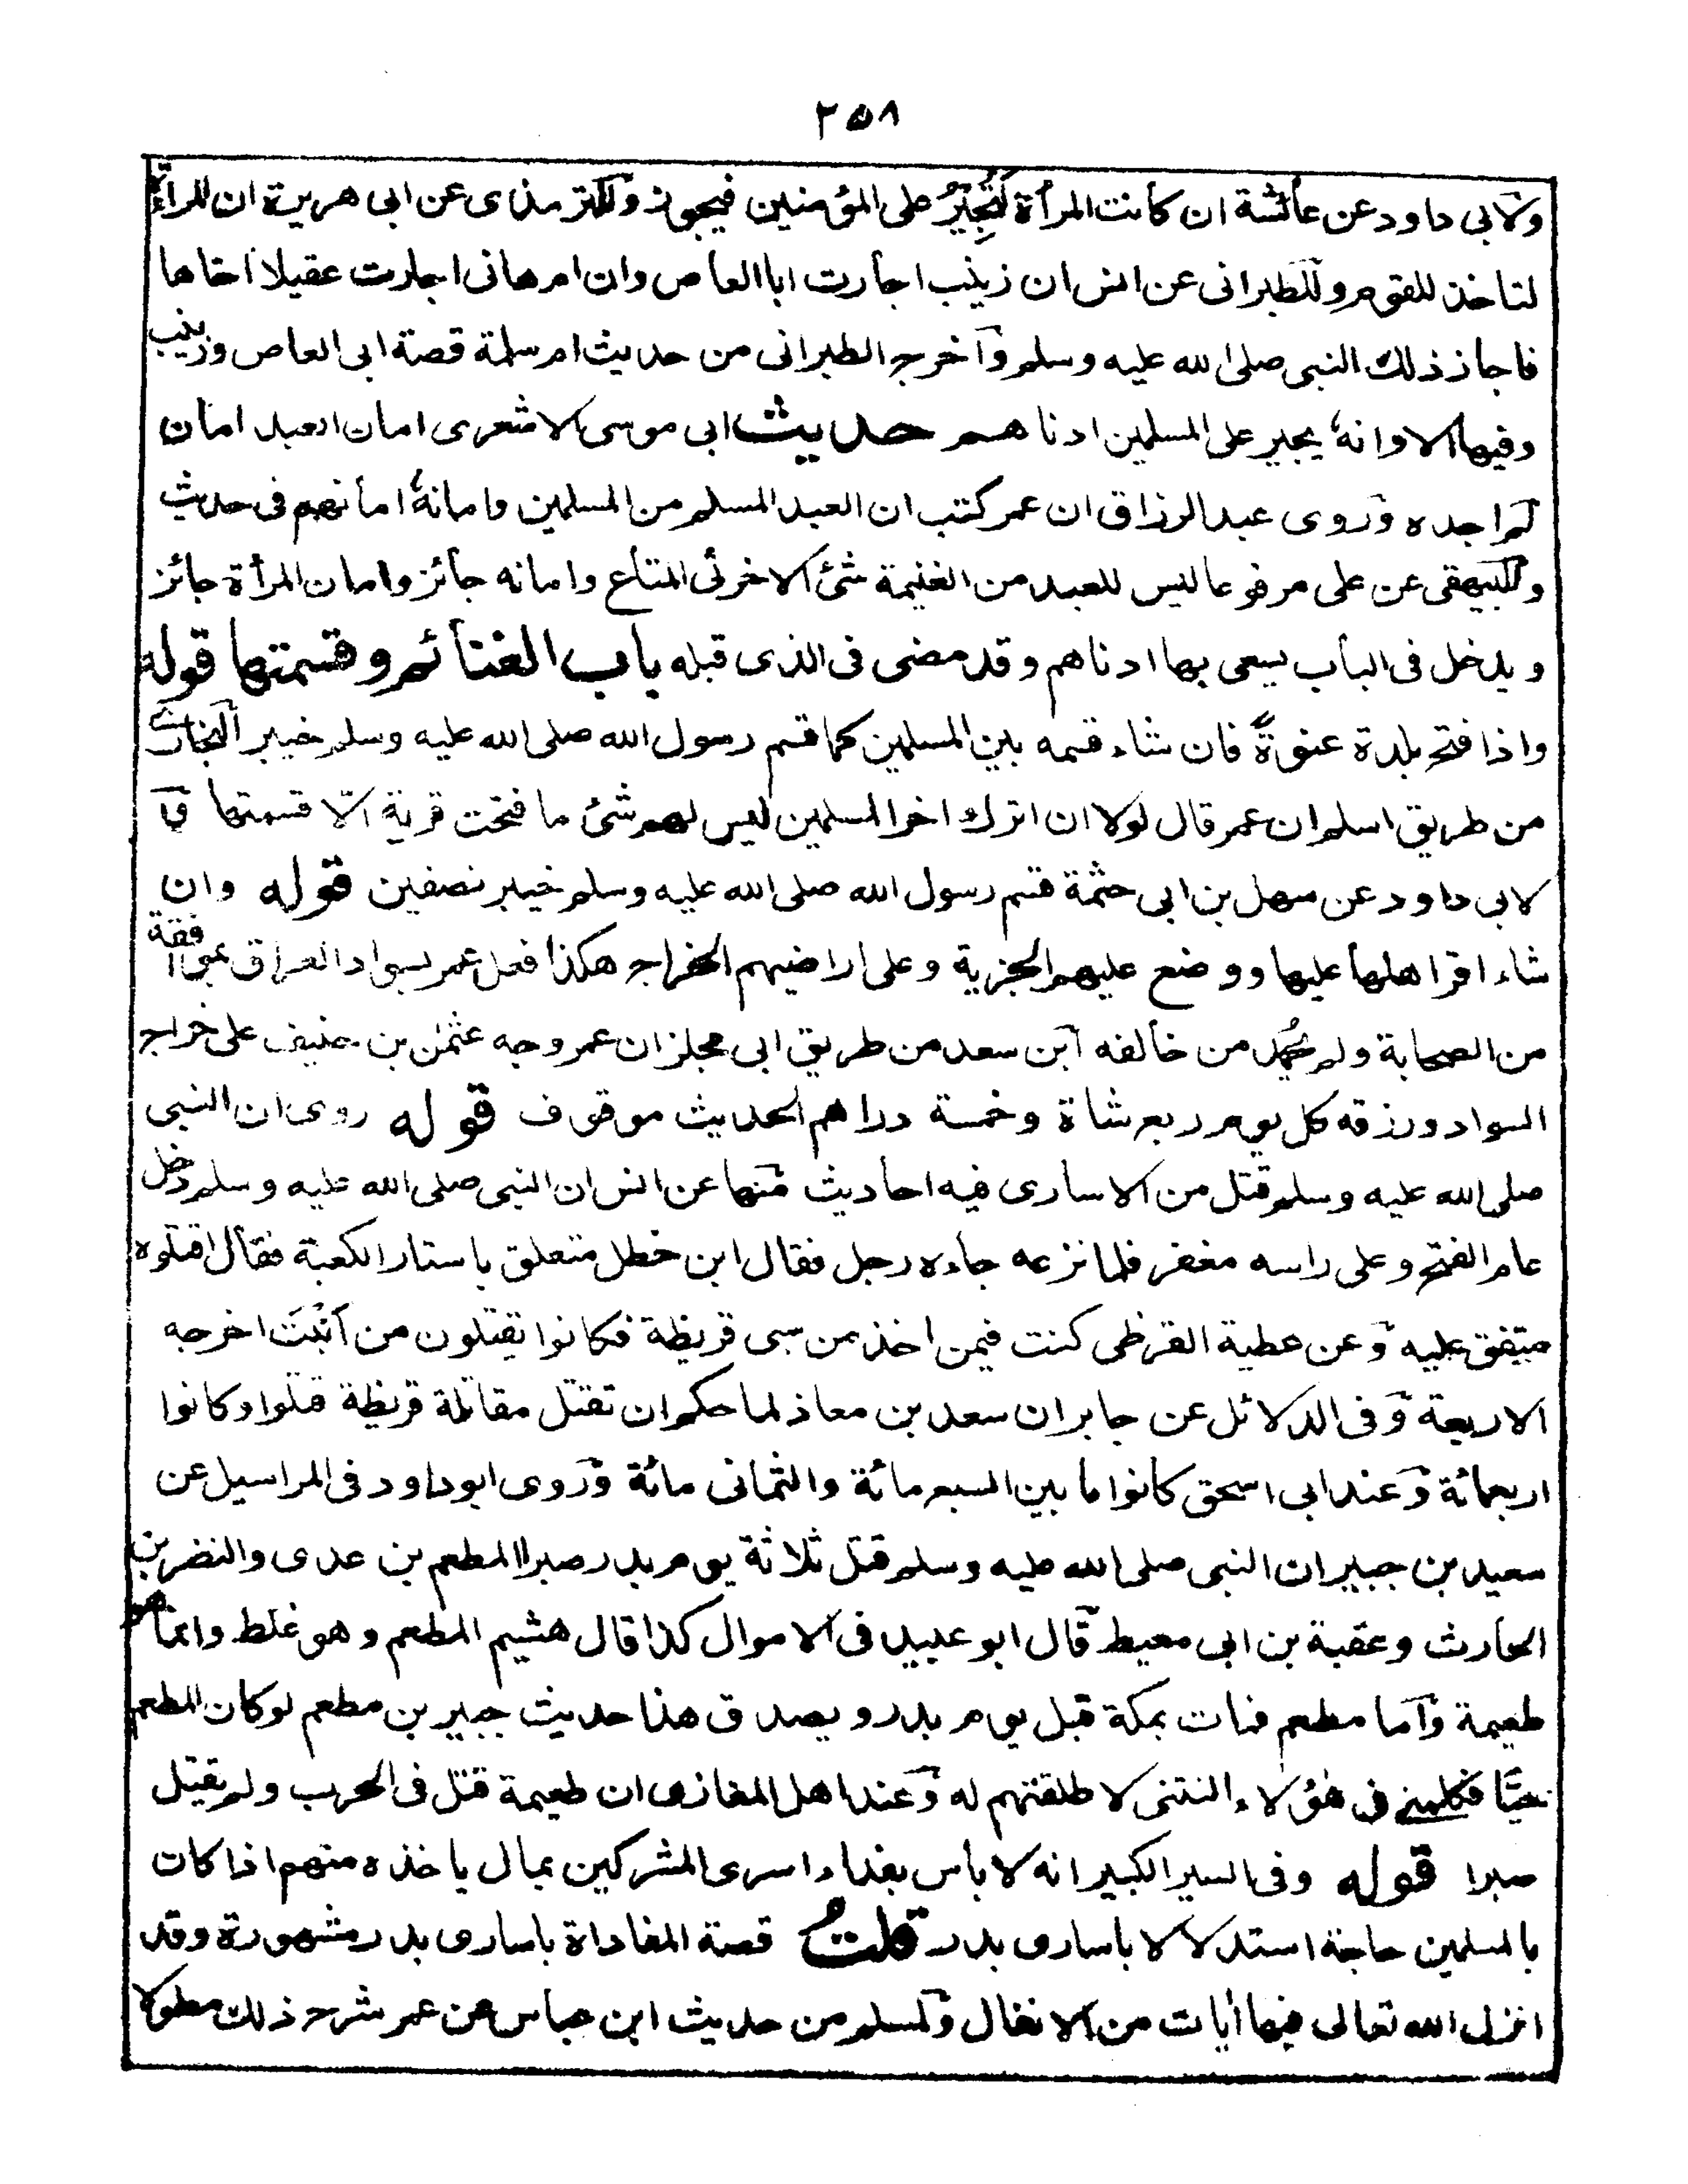 ٢٥٨
ولابى داود عن عائشة ان كانت المرأة لَتُجِيْرُ على المؤمنين فيجوز وللترمذى عن ابى هريرة ان المرأة
لتاخذ للقوم وللطبرانى عن انس ان زينب اجارت ابا العاص وان ام هانى اجارت عقيلا اخاها
فاجاز ذلك النبى صلى الله عليه وسلم وآخرجه الطبرانى من حديث ام سلمة قصة ابى العاص وزينب
وفيها الا وانه يجير على المسلمين ادناهم حديث ابى موسى الاشعرى امان العبد امان
لم اجده وروى عبد الرزاق ان عمر كتب ان العبد المسلم من المسلمين وامانهٗ امانهم فى حديث
وللبيهقى عن على مرفوعا ليس للعبد من الغنيمة شئ الا خرثى المتاع وامانه جائز وامان المرأة جائز
ويدخل فى الباب يسعى بها ادناهم وقد مضى فى الذى قبله باب الغنائم وقسمتها قوله
واذا فتح بلدة عنوةً فان شاء قسمه بين المسلمين كما قسم رسول الله صلى الله عليه وسلم خيبر البخارى
من طريق اسلم ان عمر قال لولا ان اترك اخر المسلمين ليس لهم شئ ما فتحت قرية الّا قسمتها
لابى داود عن سهل بن ابى حثمة قسم رسول الله صلى الله عليه وسلم خيبر نصفين قوله وان
شاء اقر اهلها عليها ووضع عليهم الجزية وعلى اراضيهم الخراج هكذا فعل عمر بسواد العراق بموافقة
من الصحابة ولم يُحمد من خالفه آبن سعد من طريق ابى مجلز ان عمر وجه عثمٰن بن حنيف على خراج
السواد ورزقه كل يوم ربع شاة وخمسة دراهم الحديث موقوف قوله روى ان النبى
صلى الله عليه وسلم قتل من الاسارى فيه احاديث منها عن انس ان النبى صلى الله عليه وسلم دخل
عام الفتح وعلى راسه مغفر فلما نزعه جاءه رجل فقال ابن خطل متعلق باستار الكعبة فقال اقتلوه
متفق عليه وعن عطية القرظى كنت فيمن اخذ من سبى قريظة فكانوا يقتلون من اَنْبَتَ اخرجه
الاربعة وفى الدلائل عن جابر ان سعد بن معاذ لما حكم ان تقتل مقاتلة قريظة قتلوا وكانوا
اربعمائة وعند ابى اسحق كانوا ما بين السبع مائة والثمانى مائة وروى ابو داود فى المراسيل عن
سعيد بن جبير ان النبى صلى الله عليه وسلم قتل ثلاثة يوم بدر صبرا المطعم بن عدى والنضر بن
الحارث وعقبة بن ابى معيط قآل ابو عبيد فى الاموال كذا قال هشيم المطعم وهو غلط وانما هو
طعيمة وآما مطعم فمات بمكة قبل يوم بدر ويصدق هذا حديث جبير بن مطعم لو كان المطعم
حيًّا فكلمنى فى هٰؤلاء النتنى لاطلقتهم له وعند اهل المغازى ان طعيمة قتل فى الحرب ولم يقتل
صبرا قوله وفى السير الكبير انه لا باس بفداء اسرى المشركين بمال ياخذه منهم اذا كان
بالمسلمين حاجة استدلالا باسارى بدر قلتُ قصة المفاداة باسارى بدر مشهورة وقد
انزل الله تعالى فيها اٰيات من الانفال ولمسلم من حديث ابن عباس عن عمر شرح ذلك مطولا